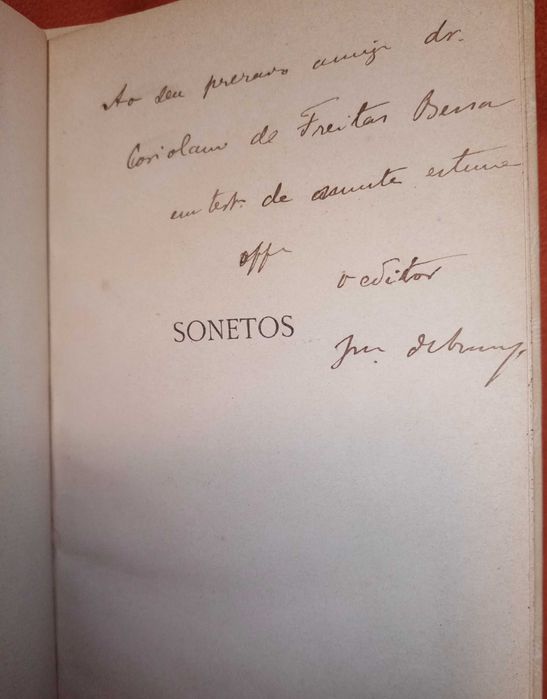 Ao seu prezavo amigo dr.
Coriolano de Freitas Bessa
em test. de muita estima
offe
o editor
SONETOS
Jm.